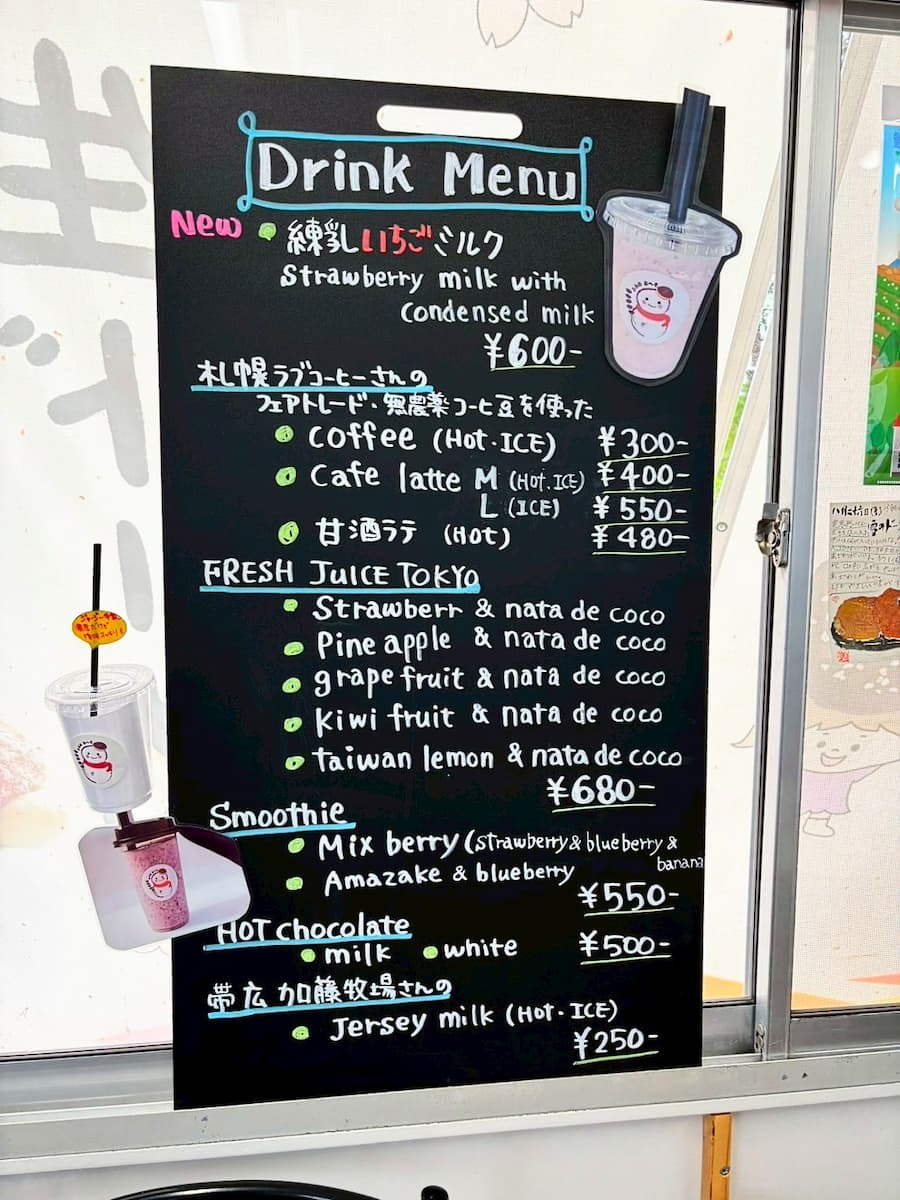 Drink Menu
New 練乳いちごミルク
Strawberry milk with
condensed milk
¥600-
札幌ラブコーヒーさんの
フェアトレード・無農薬コーヒ豆を使った
coffee (HOT・ICE) ¥300-
Cafe latte M (HOT.ICE) ¥400-
L (ICE) ¥550-
甘酒ラテ (HOT) ¥480-
FRESH JUICE TOKYO
Strawberr & nata de coco
Pine apple & nata de coco
grape fruit & nata de coco
kiwi fruit & nata de coco
taiwan lemon & nata de coco
¥680-
Smoothie
Mix berry (strawberry & blueberry &
banana
Amazake & blueberry
¥550-
HOT chocolate
milk white ¥500-
帯広 加藤牧場さんの
Jersey milk (HOT・ICE)
¥250-